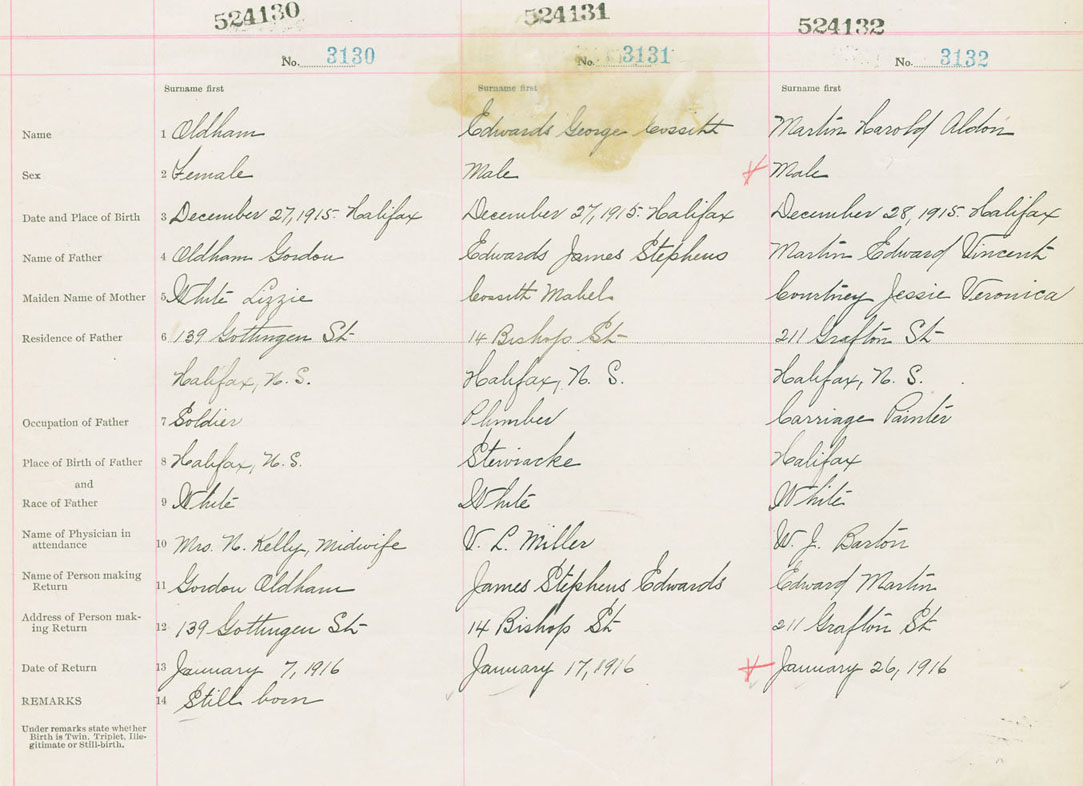 524130 524131 524132
No. 3130 No. 3131 No. 3132
Surname first Surname first Surname first
Name 1 Oldham Edwards George Cossitt Martin Harold Aldon
Sex 2 Female Male Male
Date and Place of Birth 3 December 27, 1915 - Halifax December 27, 1915 - Halifax December 28, 1915 - Halifax
Name of Father 4 Oldham Gordon Edwards James Stephens Martin Edward Vincent
Maiden Name of Mother 5 White Lizzie Cossitt Mabel Courtney Jessie Veronica
Residence of Father 6 139 Gottingen St 14 Bishop St 211 Grafton St
Halifax, N. S. Halifax, N. S. Halifax, N. S.
Occupation of Father 7 Soldier Plumber Carriage Painter
Place of Birth of Father 8 Halifax, N. S. Stewiacke Halifax
and
Race of Father 9 White White White
Name of Physician in
attendance 10 Mrs. N. Kelly, Midwife V. L. Miller W. J. Barton
Name of Person making
Return 11 Gordon Oldham James Stephens Edwards Edward Martin
Address of Person mak-
ing Return 12 139 Gottingen St 14 Bishop St 211 Grafton St
Date of Return 13 January 7, 1916 January 17, 1916 January 26, 1916
REMARKS 14 Still born
Under remarks state whether
Birth is Twin, Triplet, Ille-
gitimate or Still-birth.